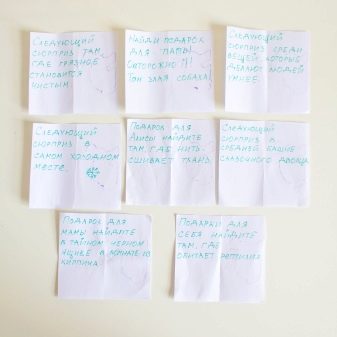 Следующий
сюрприз там,
где грязное
становится
чистым
Найди подарок
для папы!
Осторожно!!!
Там злая собака!
Следующий
сюрприз среди
вещей, которые
делают людей
умнее.
Следующий
сюрприз в
самом холодном
месте.
Подарок для
найдите
там, где нить
сшивает ткань.
Следующий
сюрприз в
средней башне
сказочного дворца
Подарок для
мамы найдите
в тайном черном
ящике в комнате из
кирпича.
Подарки для
себя найдите
там, где
обитает рептилия